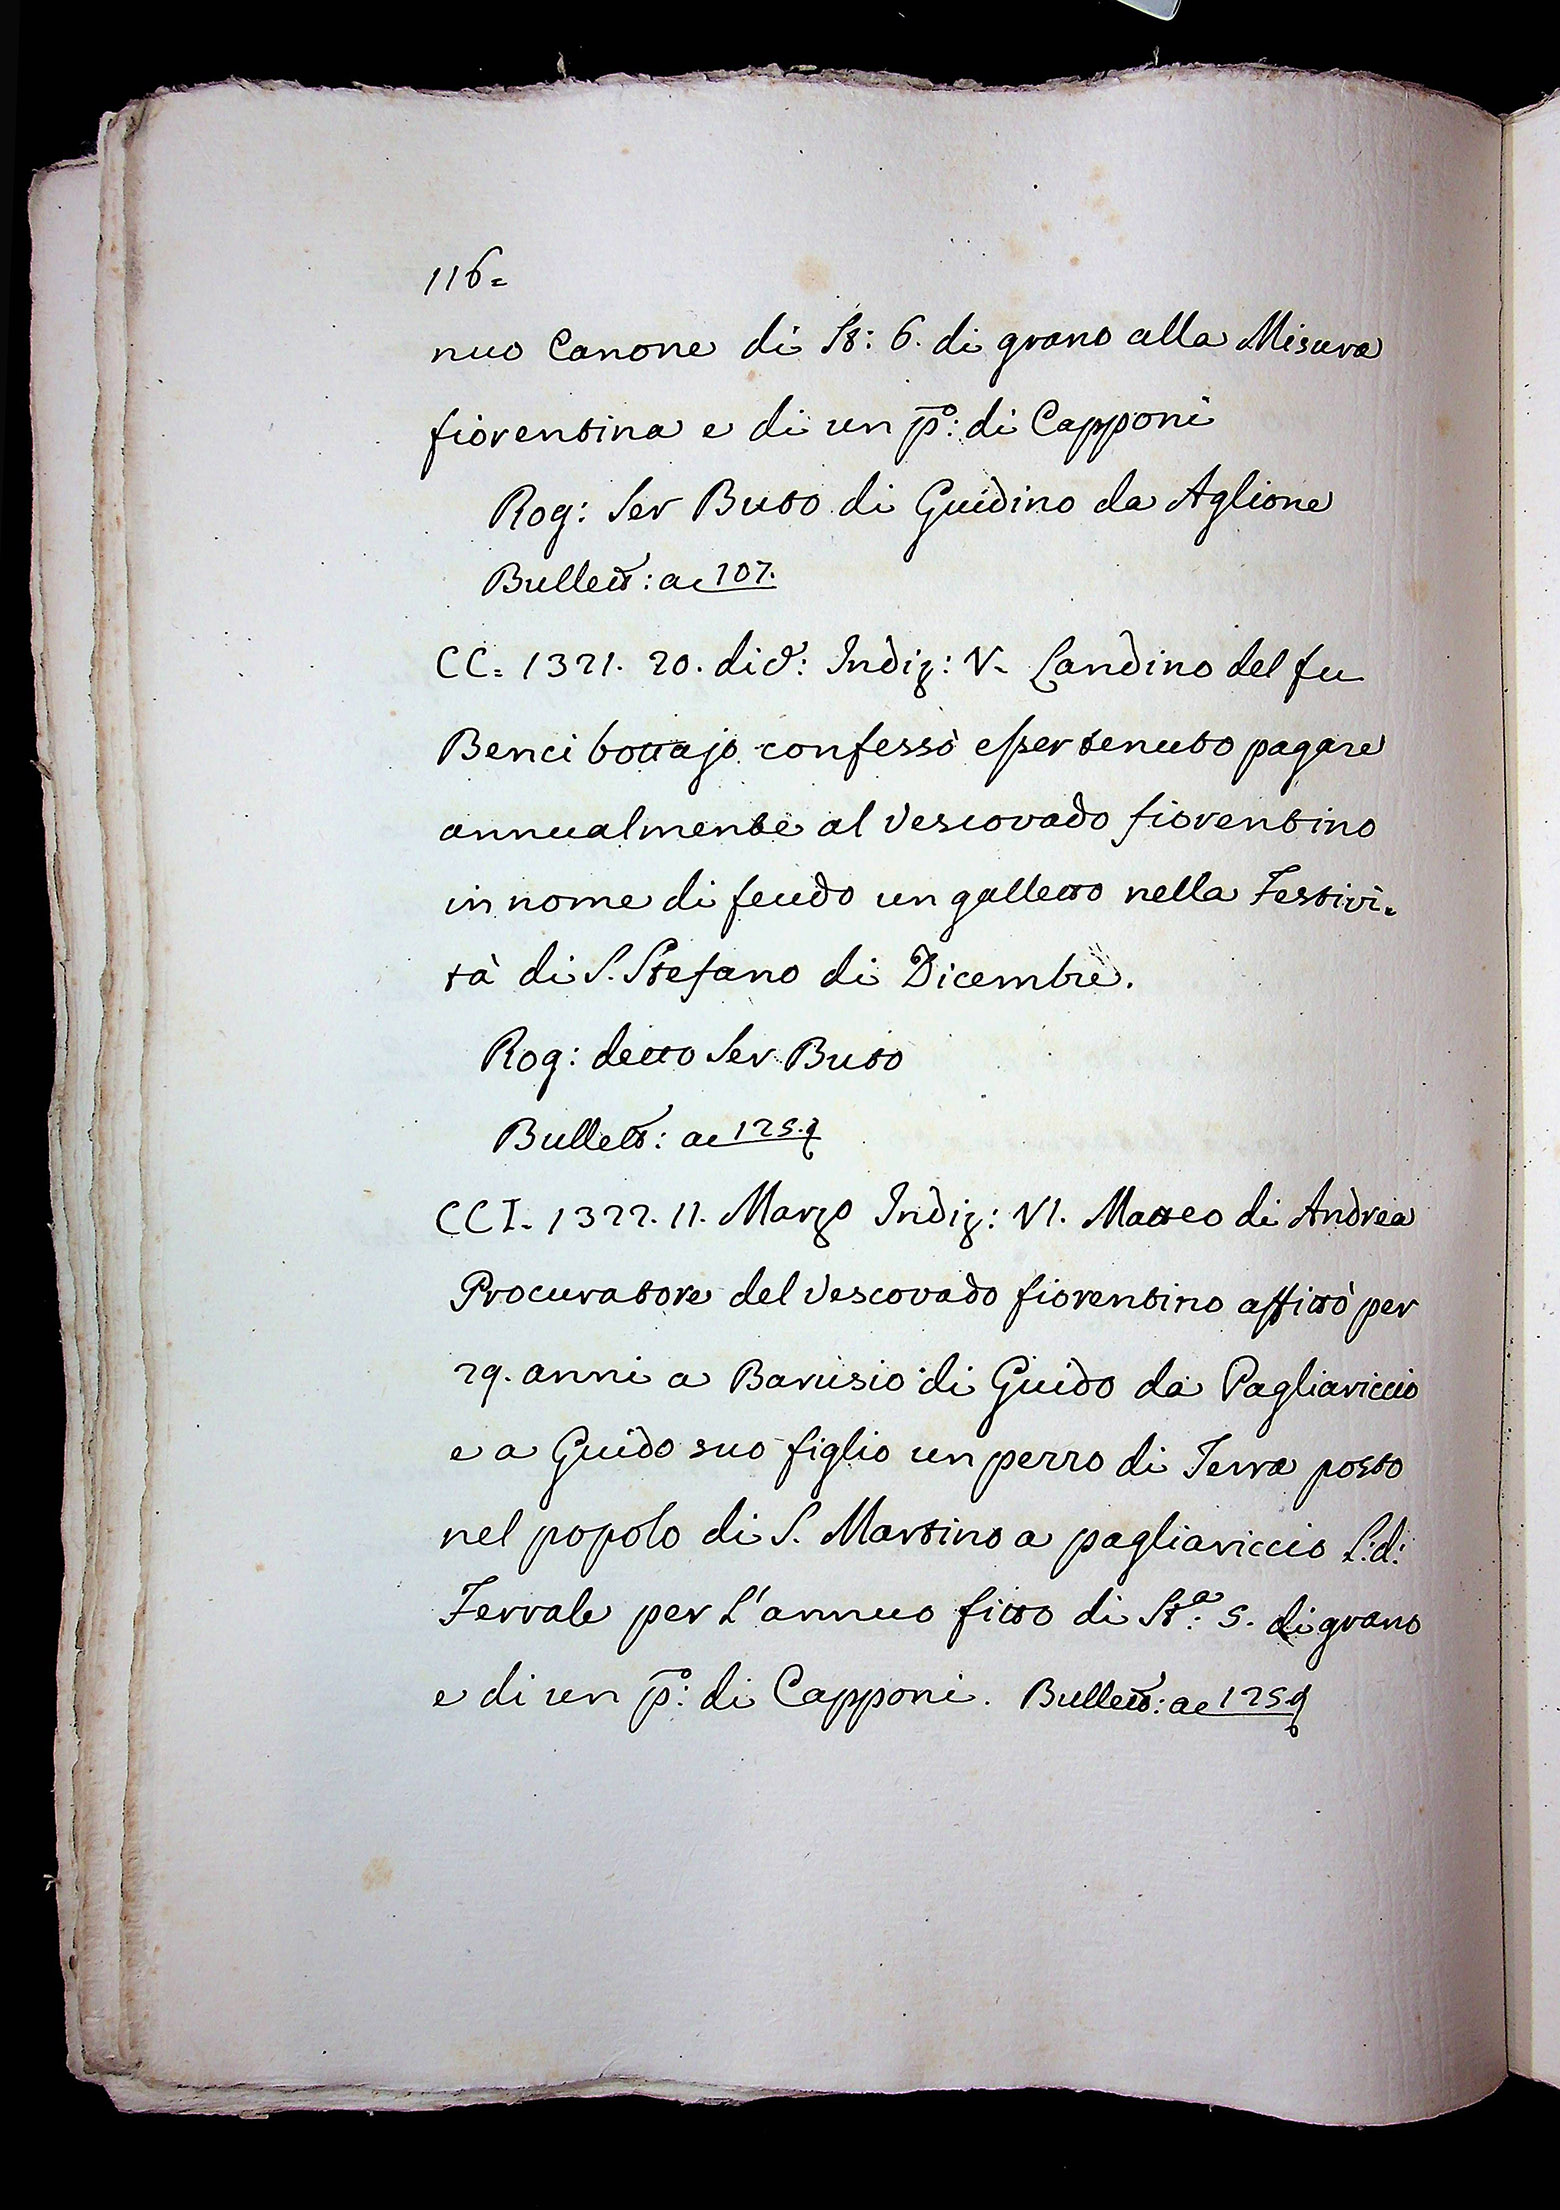 116=
nuo Canone di St: 6. di grano alla Misura
fiorentina e di un p̄o: di Capponi
Rog: Ser Buto di Guidino da Aglione
Bullett: ac 107.
CC. 1321. 20. did: Indiz: V. Landino del fu
Benci bottajo confessò esser tenuto pagare
annualmente al Vescovado fiorentino
in nome di feudo un galletto nella Festivi=
tà di S. Stefano di Dicembre.
Rog: detto Ser Buto
Bullett: ac 125.
CCI. 1322. 11. Marzo Indiz: VI. Matteo di Andrea
Procuratore del Vescovado fiorentino affittò per
29. anni a Barusio di Guido da Pagliariccio
e a Guido suo figlio un pezzo di Terra posto
nel popolo di S. Martino a pagliariccio L: d:
Ferrale per L'annuo fitto di Sta: 5. di grano
e di un p̄o: di Capponi. Bullett: ac 125